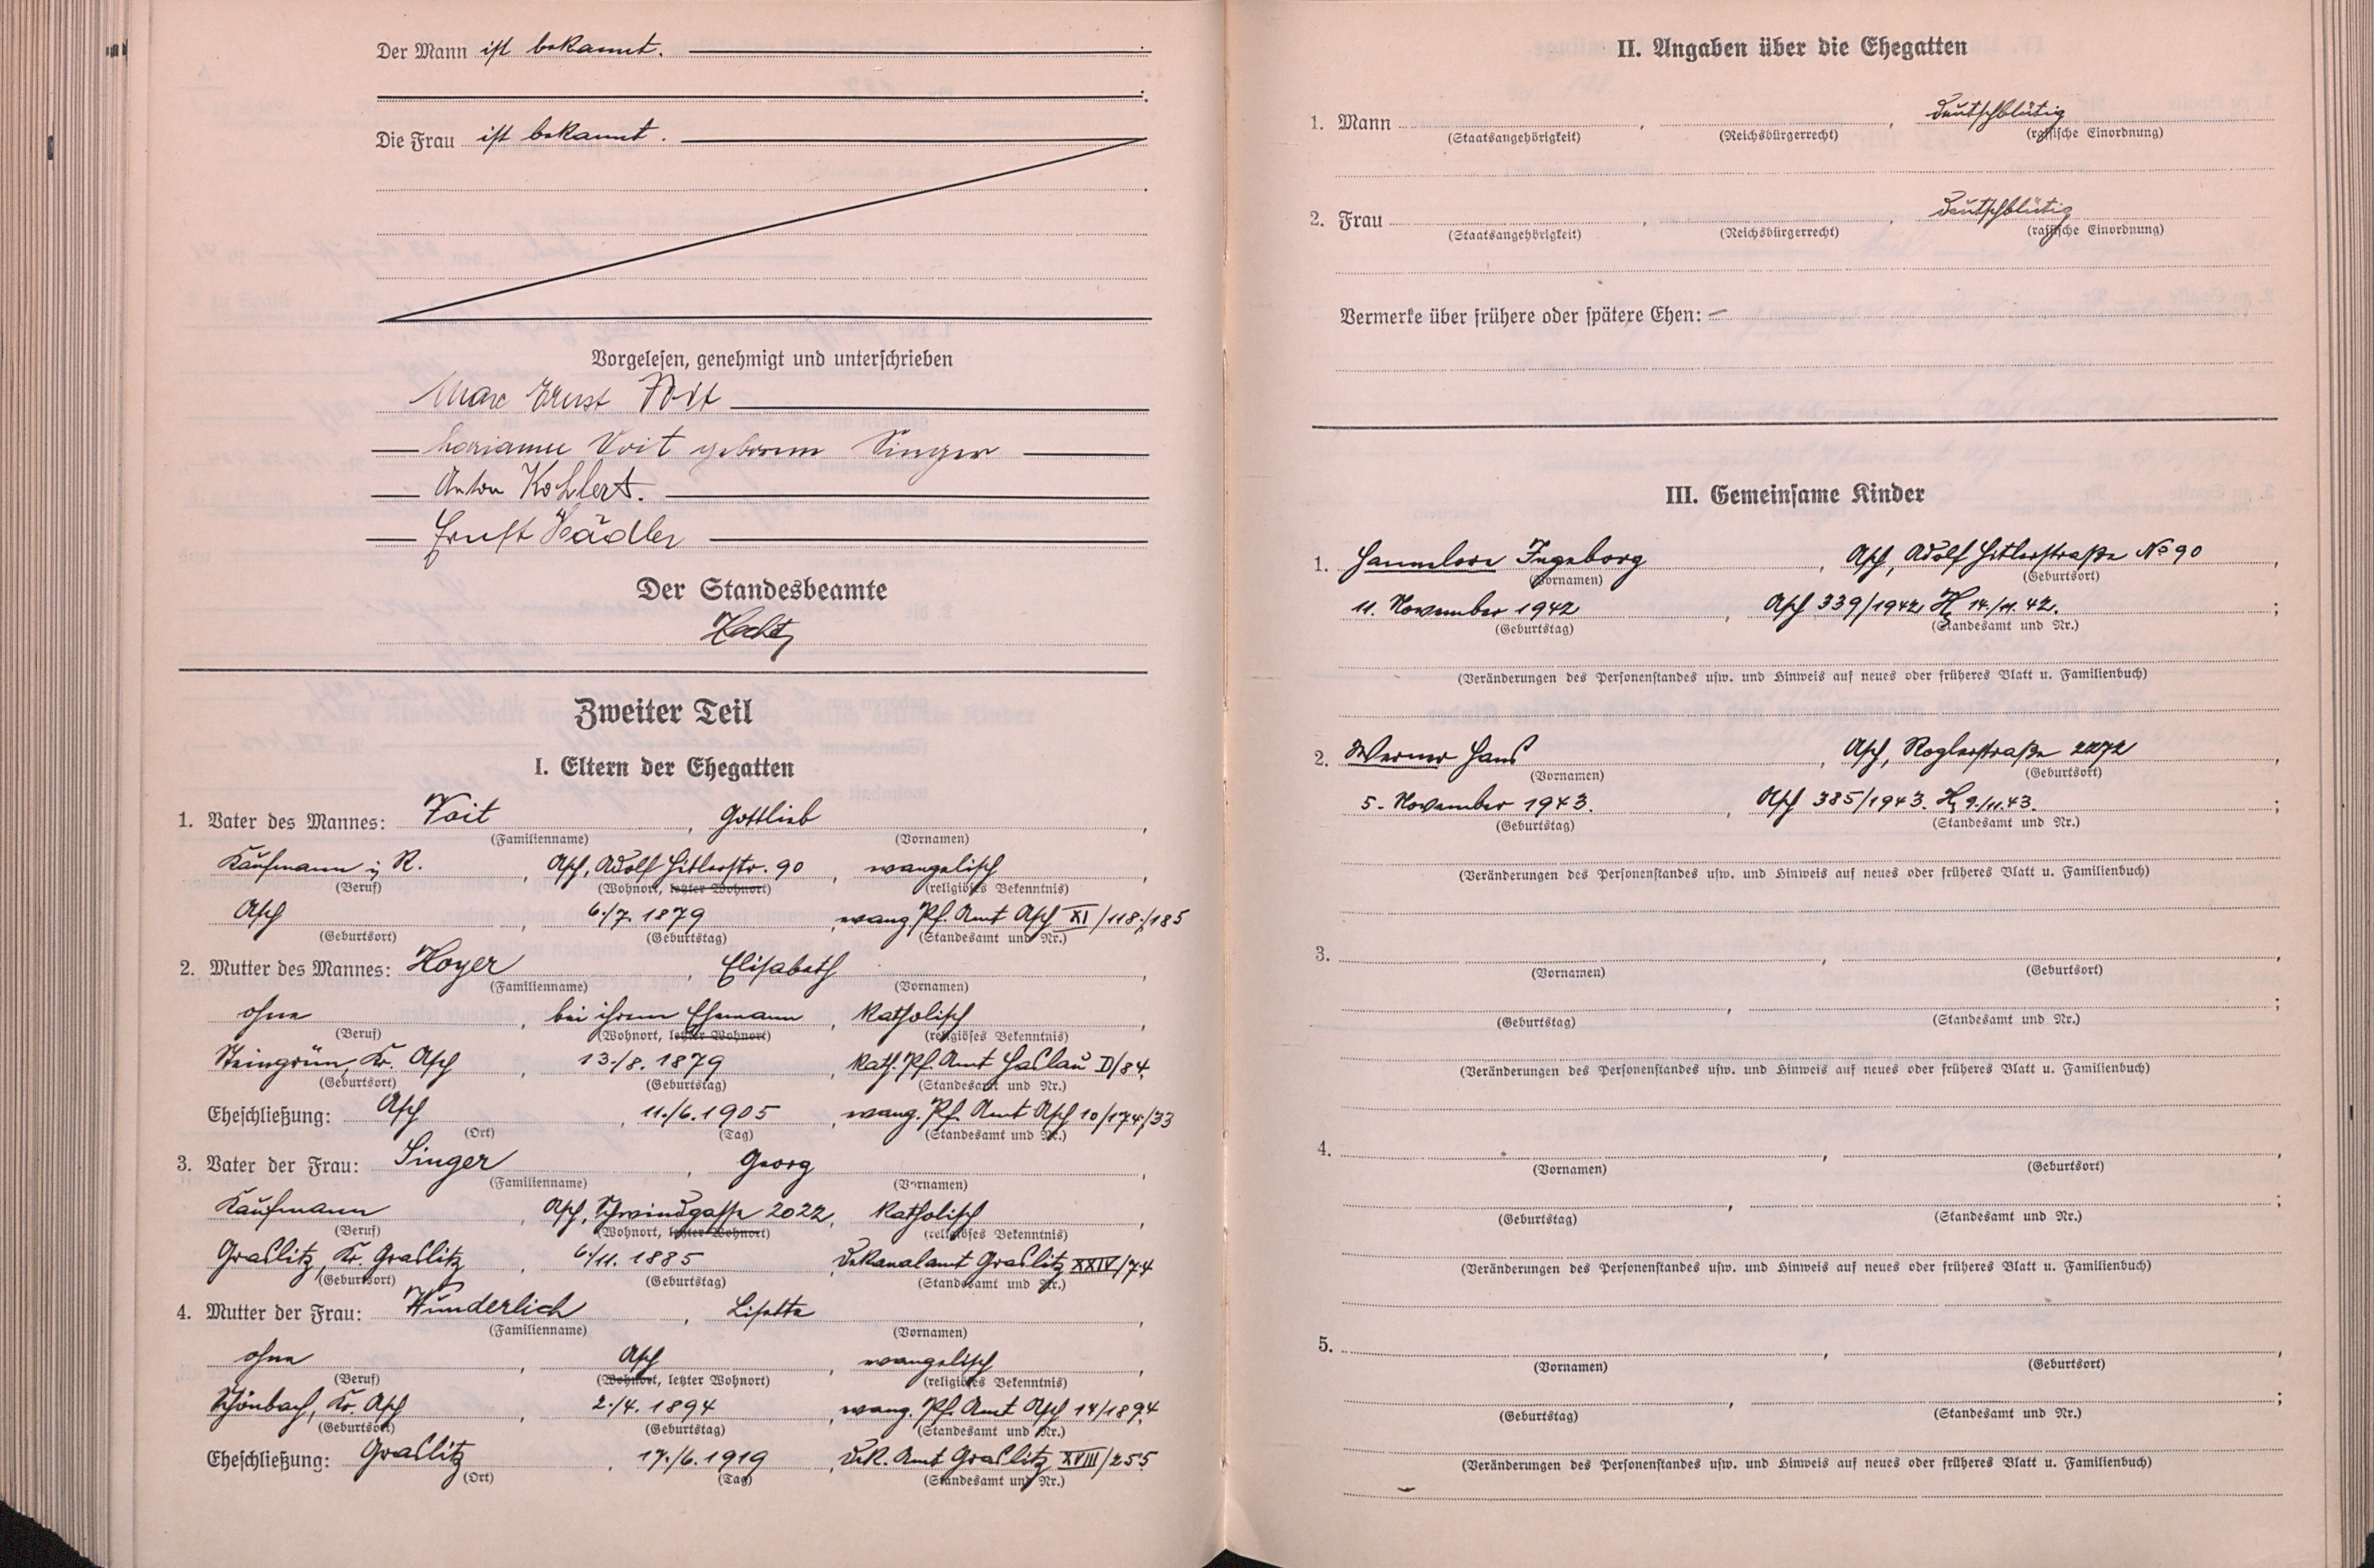 Der Mann ist bekannt.
Die Frau ist bekannt.
Vorgelesen, genehmigt und unterschrieben
Max Ernst Voit
Marianne Voit geborene Singer
Anton Kohlert.
Ernst Wädler
Der Standesbeamte
Zweiter Teil
I. Eltern der Ehegatten
1. Vater des Mannes: Voit, Gottlieb,
(Familienname) (Vornamen)
Kaufmann i. R., Asch, Adolf Hitlerstr. 90, evangelisch,
(Beruf) (Wohnort, letzter Wohnort) (religiöses Bekenntnis)
Asch, 6./7. 1879, evang. Pf. Amt Asch XI/118./185
(Geburtsort) (Geburtstag) (Standesamt und Nr.)
2. Mutter des Mannes: Hoyer, Elisabeth,
(Familienname) (Vornamen)
ohne, bei ihrem Ehemann, katholisch,
(Beruf) (Wohnort, letzter Wohnort) (religiöses Bekenntnis)
Steingrün, Kr. Asch, 13./8. 1879, kath. Pf. Amt Haslau D/84.
(Geburtsort) (Geburtstag) (Standesamt und Nr.)
Eheschließung: Asch, 11./6. 1905, evang. Pf. Amt Asch 10/174./33
(Ort) (Tag) (Standesamt und Nr.)
3. Vater der Frau: Singer, Georg,
(Familienname) (Vornamen)
Kaufmann, Asch, Schwindgasse 2022, katholisch,
(Beruf) (Wohnort, letzter Wohnort) (religiöses Bekenntnis)
Graslitz, Kr. Graslitz, 6./11. 1885, Dekanalamt Graslitz XXIV/74
(Geburtsort) (Geburtstag) (Standesamt und Nr.)
4. Mutter der Frau: Wunderlich, Lisette,
(Familienname) (Vornamen)
ohne, Asch, evangelisch,
(Beruf) (Wohnort, letzter Wohnort) (religiöses Bekenntnis)
Schönbach, Kr. Asch, 2./4. 1894, evang. Pf. Amt Asch 14/1894
(Geburtsort) (Geburtstag) (Standesamt und Nr.)
Eheschließung: Graslitz, 17./6. 1919, Dek. Amt Graslitz XVIII/255.
(Ort) (Tag) (Standesamt und Nr.)
II. Angaben über die Ehegatten
1. Mann, , deutschblütig
(Staatsangehörigkeit) (Reichsbürgerrecht) (rassische Einordnung)
2. Frau, , deutschblütig
(Staatsangehörigkeit) (Reichsbürgerrecht) (rassische Einordnung)
Vermerke über frühere oder spätere Ehen: –
III. Gemeinsame Kinder
1. Hannelore Ingeborg, Asch, Adolf Hitlerstraße No 90,
(Vornamen) (Geburtsort)
11. November 1942, Asch 339/1942 14./11. 42.;
(Geburtstag) (Standesamt und Nr.)
(Veränderungen des Personenstandes usw. und Hinweis auf neues oder früheres Blatt u. Familienbuch)
2. Werner Hans, Asch, Roglerstraße 2272,
(Vornamen) (Geburtsort)
5. November 1943., Asch 385/1943. 9./11. 43.;
(Geburtstag) (Standesamt und Nr.)
(Veränderungen des Personenstandes usw. und Hinweis auf neues oder früheres Blatt u. Familienbuch)
3. , ,
(Vornamen) (Geburtsort)
, ;
(Geburtstag) (Standesamt und Nr.)
(Veränderungen des Personenstandes usw. und Hinweis auf neues oder früheres Blatt u. Familienbuch)
4. , ,
(Vornamen) (Geburtsort)
, ;
(Geburtstag) (Standesamt und Nr.)
(Veränderungen des Personenstandes usw. und Hinweis auf neues oder früheres Blatt u. Familienbuch)
5. , ,
(Vornamen) (Geburtsort)
, ;
(Geburtstag) (Standesamt und Nr.)
(Veränderungen des Personenstandes usw. und Hinweis auf neues oder früheres Blatt u. Familienbuch)